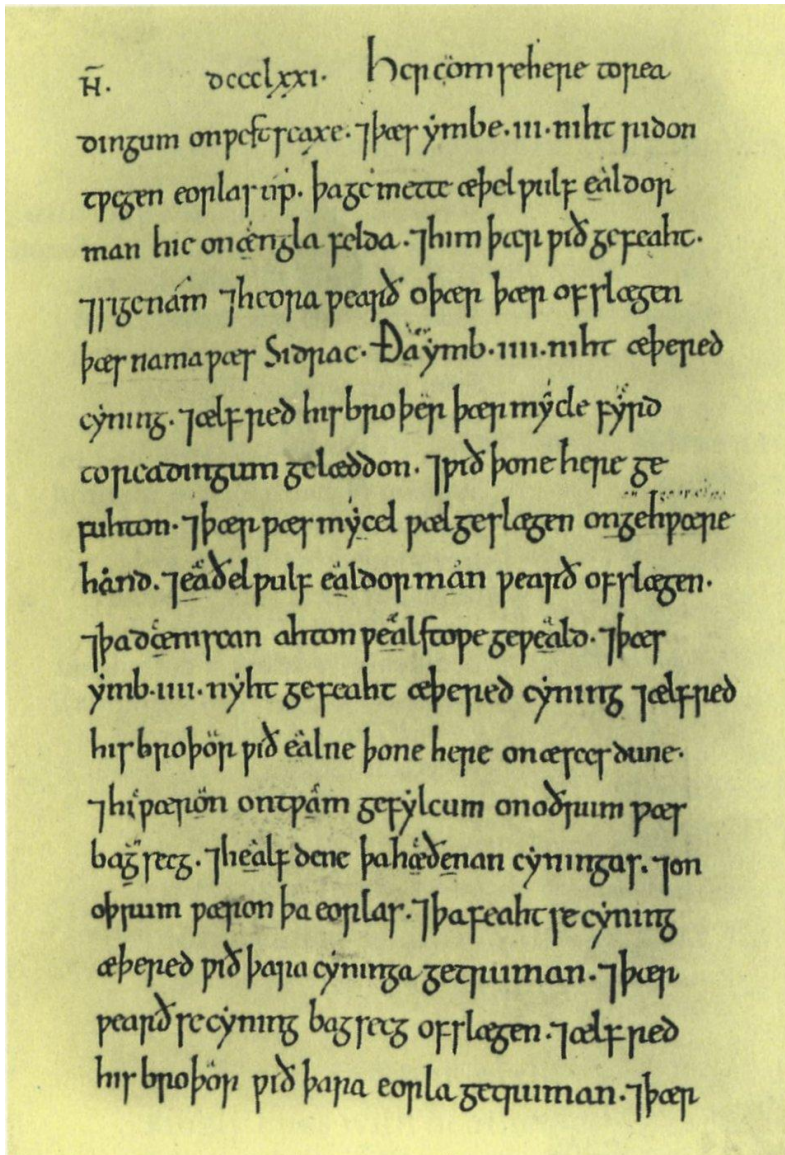 N̄. dccclxxi. Her cōm se here to rea
dingum on ƿestseaxe. ⁊ þæs ẏmbe .iii. niht ridon
tƿegen eorlas úp. þa gemette æþelƿulf ealdor
man hie on ængla felda. ⁊ him þær ƿið gefeaht.
⁊ sige nám ⁊ heora ƿearð oþær þær ofslægen
þæs nama ƿæs Sidrac. Ða ẏmb .iiii. niht æþered
cẏning. ⁊ ælfred his broþer þær mẏcle fẏrd
to readingum gelæddon. ⁊ ƿið þone here ge
fuhton. ⁊ þær ƿæs mẏcel ƿæl geslægen on gehƿære
hánd. ⁊ eaðelƿulf ealdorman ƿearð ofslægen.
⁊ þa dæniscan ahton ƿealstoƿe geƿeald. ⁊ þæs
ẏmb .iiii. nẏht gefeaht æþered cẏning ⁊ ælfred
his broþor ƿið ealne þone here on æscesdune.
⁊ hi ƿæron on tƿam gefẏlcum on oðrum ƿæs
bagsecg. ⁊ healfdene þa hæðenan cẏningas. ⁊ on
oþrum ƿæron þa eorlas. ⁊ þa feaht se cẏning
æþered ƿið þara cẏninga getruman. ⁊ þær
ƿearð se cẏning bagsecg ofslægen. ⁊ ælfred
his broþor ƿið þara eorla getruman. ⁊ þær